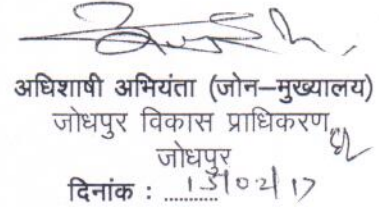 अधिशाषी अभियंता (जोन–मुख्यालय)
जोधपुर विकास प्राधिकरण
जोधपुर
दिनांक : ..........